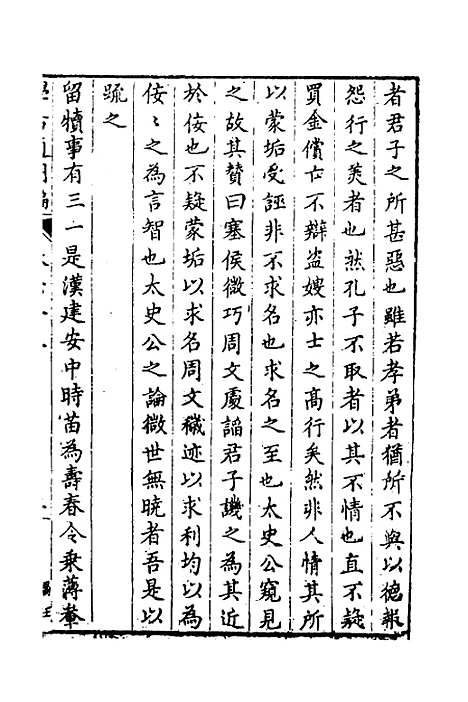 者君子之所甚惡也雖若孝弟者猶所不與以德報
怨行之美者也然孔子不取者以其不情也直不疑
買金償亡不辯盜嫂亦士之高行矣然非人情其所
以蒙垢受誣非不求名也求名之至也太史公窺見
之故其贊曰塞侯微巧周文處謟君子譏之為其近
於佞也不疑蒙垢以求名周文穢迹以求利均以為
佞〻之為言智也太史公之論微世無曉者吾是以
疏之
留犢事有三一是漢建安中時苗為壽春令乗薄軬